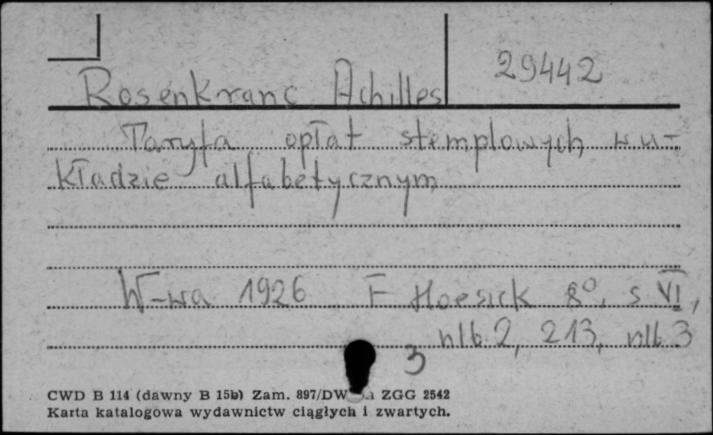 29442
Rosenkranc Achilles
Taryfa opłat stemplowych w u-
kładzie alfabetycznym
W-wa 1926 F Hoesick 8°, s VI,
nlb 2, 213, nlb 3
3
CWD B 114 (dawny B 15b) Zam. 897/DW ZGG 2542
Karta katalogowa wydawnictw ciągłych i zwartych.